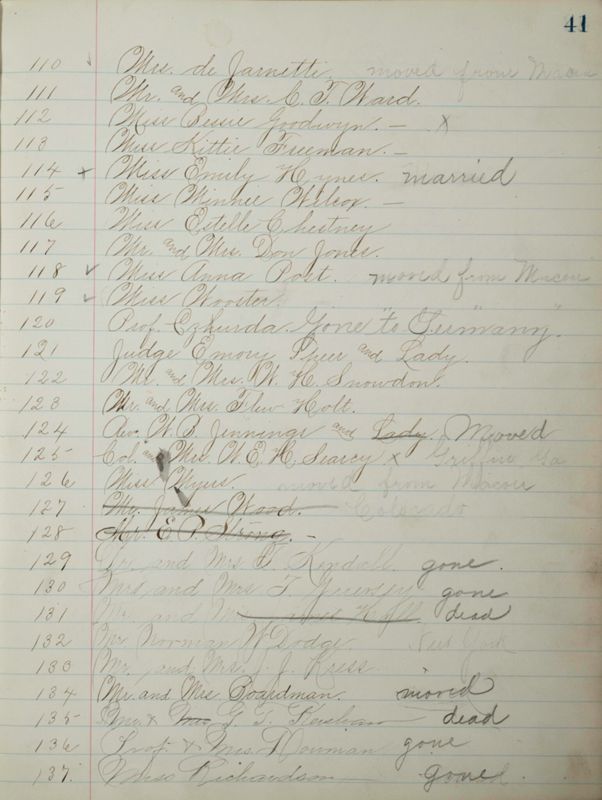 41
110 Mrs. de Jarnette. moved from Macon
111 Mr. and Mrs. C. T. Ward.
112 Miss Bessie Goodwyn. — x
113 Miss Kittie Freeman. —
114 + Miss Emily Hynes. married
115 Miss Minnie Wilcox. —
116 Miss Estelle Chestney
117 Mr. and Mrs. Don Jones.
118 ✓ Miss Anna Post. moved from Macon
119 ✓ Miss Wooster
120 Prof. Czhurda. Gone "to Germany".
121 Judge Emory Speer and Lady.
122 Mr. and Mrs. W. H. Snowdon.
123 Mr. and Mrs. Flew Holt.
124 Rev. W. B. Jennings and Lady. Moved
125 Col. and Mrs. W. E. H. Searcy x Griffin Ga
126 Miss Myers. moved from Macon
127 Mr. James Wood. Colorado
128 Mr. E. P. Strong. —
129 and Mrs Kendall. gone.
130 and Mrs. T. gone
131 Mr. and Holt. dead
132 Mr Norman W Dodge. New York
133 Mr. and Mrs. J. J.
134 Mr. and Mrs. Boardman. moved
135 Mr. & Mrs G. T. Kershaw dead
136 Prof. & Mrs. Nowman gone
137. Miss Richardson gone